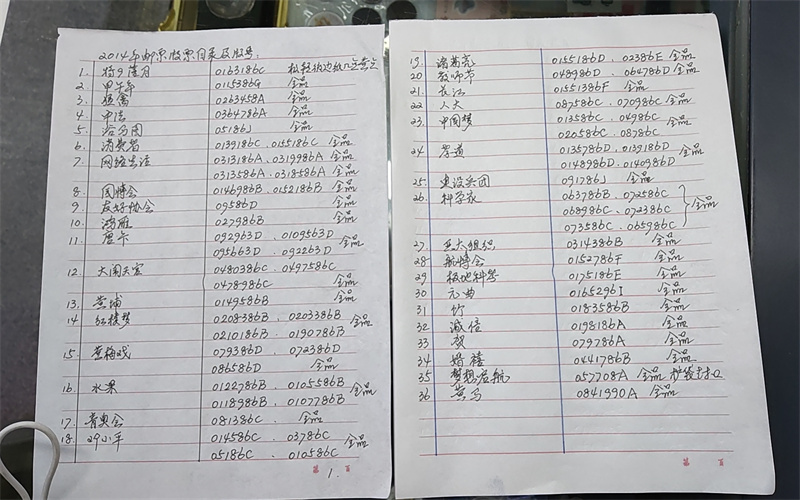 2014年邮票股票目录及股号:
1. 拾9隆月 0163186C
2 甲午年 015386G 全品
3 猛禽 0263458A 全品
4 中法 0364786A 全品
5 洛公园 05186J 全品
6 消费者 0139186C、0155186C 全品
7 网络生活 0313186A、0319986A 全品
0313586A、0318586A
8 园博会 0146986B、0152186B 全品
9 友好协会 09586D 全品
10 鸿雁 027986B 全品
11 唐卡 092963D、0109563D 全品
095663D、092263D
12 大闹天宫 048038bC、049758C
047898C 全品
13. 黄埔 014958B 全品
14 红楼梦 020838B、020338B 全品
021018B、019078B
15 黄梅戏 07938D、07238D
08658D 全品
16 水果 0122786B、0105586B 全品
0118986B、0107786B
17 青奥会 081386C、全品
18. 29小平 014586C、03786C 全品
05186C、010586C
第 1. 页
19. 诸葛亮 0155186D、02386E 全品
20 教师节 048986D、064786D 全品
21. 长江 0155138F 全品
22. 人大 087586C、070986C 全品
23. 中国梦 013586C、04986C 全品
020586C、08786C
24 孝道 0135786D、0139186D 全品
0148986D、0140986D
25. 建设兵团 091786J 全品
26. 科学家 063786B、072586C 全品
068986C、072386C
073586C、065986C
27. 亚太组织 0314386B 全品
28. 航博会 0152786F 全品
29 极地科学 0175186F 全品
30 元曲 0165296I 全品
31 竹 0183586B 全品
32 诚信 0198186A 全品
33 贺 079786A 全品
34 婚禧 0441786B 全品
35 梦想启航 057708A 全品 护袋封口
36 黄马 0841990A 全品
第 页